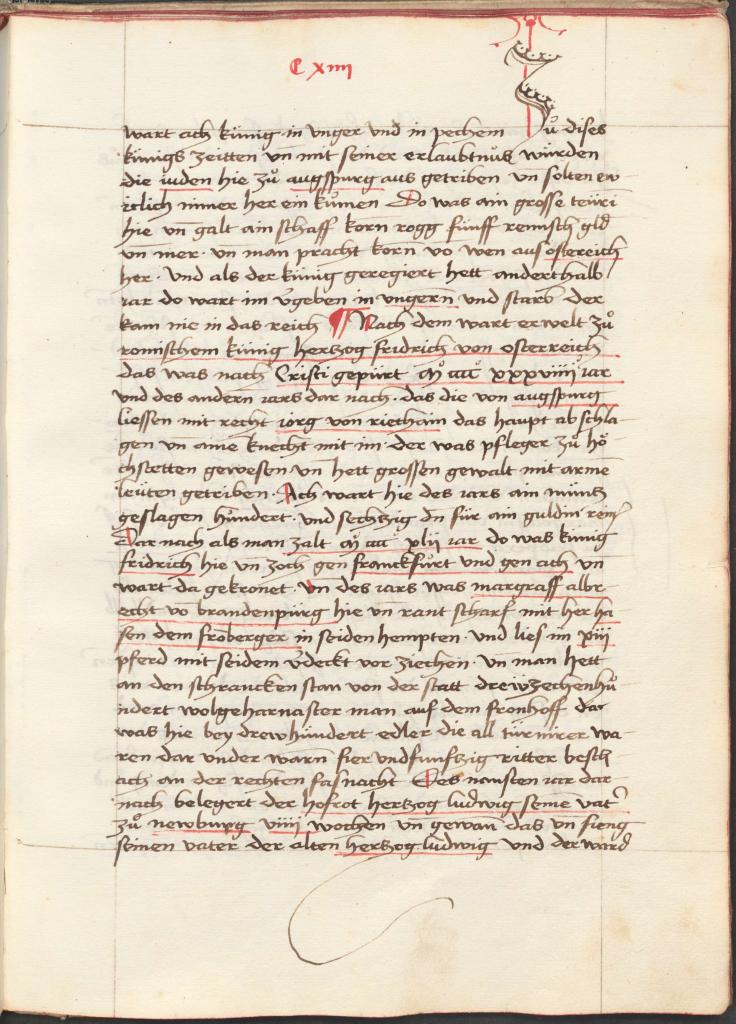 C xiiii
wart ach künig in vnger vnd in pechem Zů dises
künigs zeitten vn̄ mit seiner erlaubtnus würden
die iuden hie zů augspurg aus getriben vn̄ solten ew
iclich nimer her ein kumen Do was ain grosse teüri
hie vn̄ galt ain schaff korn rogg fünff reinisch gld
vn̄ mer · vn̄ man pracht korn vo wen aus ostereich
her · vnd als der künig geregiert hett anderthalb
iar do wart im v̄geben in vngern vnd starb der
kam nie in das reich ¶ Nach dem wart erwelt zů
romischem künig hertzog fridrich von osterreich
das was nach Cristi gepürt M cccc xxxviiii iar
vnd des andern iars dar nach · das die von augspurg
liessen mit recht iörg von riechain das haupt ab schla
gen vn̄ aine knecht mit im · der was pfleger zů hö
chstetten gewesen vn̄ hett grossen gewalt mit arme
leüten getriben · Ach wart hie des iars ain müntz
geslagen hundert · vnd sechtzig dn̄ für ain guldin rein
Dar nach als man zalt M cccc xlii iar do was künig
fridrich hie vn̄ zoch gen franckfürt vnd gen ach vn̄
wart da gekronet · Vn̄ des iars was margraff albr
echt vo brandenpürg hie vn̄ rant scharf mit her ha
sen dem froberger in seiden hempten · vnd lies im xiiii
pferd mit seidem v̄deckt vor ziechen · vn̄ man hett
an den schrancken stan von der statt drewzechenhů
ndert wolgeharnaster man auf dem fronhoff dar
was hie bey drewhundert edler die all türnirer wa
ren dar vnder warn fier vndfunfszig ritter besch
ach an der rechten fasnacht Des nausten iar dar
nach belegert der hofrot hertzog ludwig seine vat
zů newburg viiii wochen vn̄ gewan das vn̄ fieng
seinen vater der alten hertzog ludwig vnd der ward